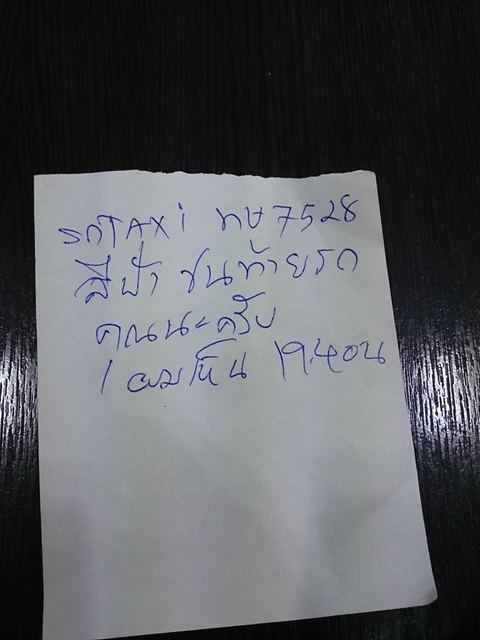 รถTAXi ทษ7528
สีฟ้า ชนท้ายรถ
คุณนะครับ
ผมเห็น 19.40น